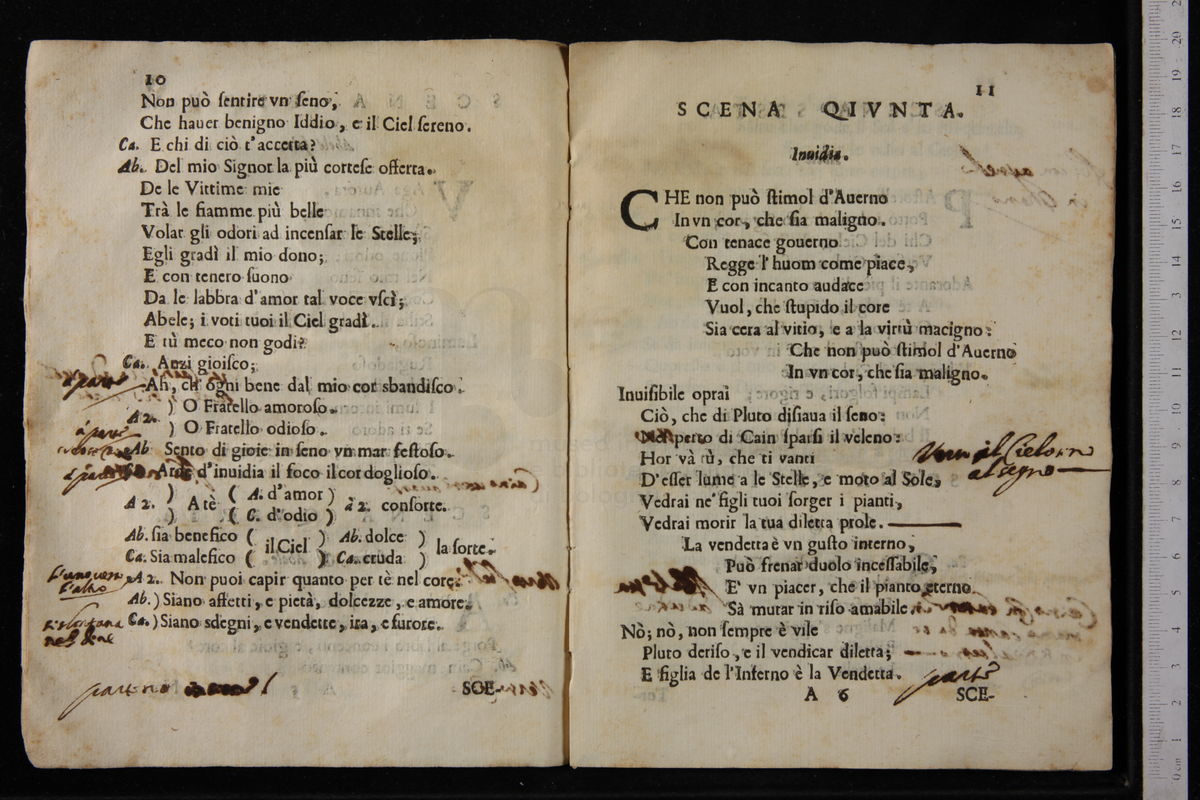 10
Non può ſentire vn ſeno,
Che hauer benigno Iddio, e il Ciel ſereno.
Ca. E chi di ciò t'accetta?
Ab. Del mio Signor la più corteſe offerta.
De le Vittime mie
Trà le fiamme più belle
Volar gli odori ad incenſar le Stelle;
Egli gradì il mio dono;
E con tenero ſuono
Da le labbra d'amor tal voce vſcì;
Abele; i voti tuoi il Ciel gradì.
E tù meco non godi?
Ca. Anzi gioiſco;
à parte
Ah, ch' ogni bene dal mio cor sbandiſco.
A 2. ) O Fratello amoroſo.
) O Fratello odioſo.
à parte
Ab Sento di gioie in ſeno vn mar feſtoſo.
à parte
d'inuidia il foco il cor doglioſo.
A 2. ) A tè ( A. d'amor ) à 2. conſorte.
) ( C. d'odio )
Ab. ſia benefico ( il Ciel ) Ab. dolce ) la ſorte.
Ca. Sia malefico ( ) Ca. cruda )
A 2. Non puoi capir quanto per tè nel core.
Ab. ) Siano affetti, e pietà, dolcezze, e amore.
Ca. ) Siano sdegni, e vendette, ira, e furore.
partono
SCE-
11
SCENA QIVNTA.
Inuidia.
CHE non può ſtimol d'Auerno
In vn cor, che ſia maligno.
Con tenace gouerno
Regge l'huom come piace,
E con incanto audace
Vuol, che ſtupido il core
Sia cera al vitio, e a la virtù macigno:
Che non può ſtimol d'Auerno
In vn cor, che ſia maligno.
Inuiſibile oprai
Ciò, che di Pluto diſiaua il ſeno:
Nel petto di Cain ſparſi il veleno:
Hor và tù, che ti vanti
D'eſſer lume a le Stelle, e moto al Sole,
Vedrai ne' figli tuoi ſorger i pianti,
Vedrai morir la tua diletta prole.
La vendetta è vn guſto interno,
Può frenar duolo inceſſabile,
E' vn piacer, che il pianto eterno
Sà mutar in riſo amabile.
Nò; nò, non ſempre è vile
Pluto deriſo, e il vendicar diletta;
E figlia de l'Inferno è la Vendetta.
parte
A 6
SCE-